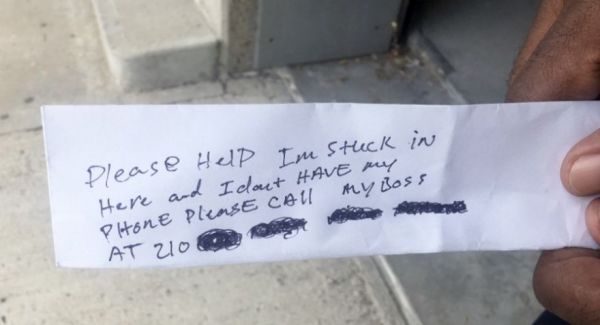 Please HelP Im stuck in
Here and I dont HAVE my
PHone Please CAll My Boss
AT 210